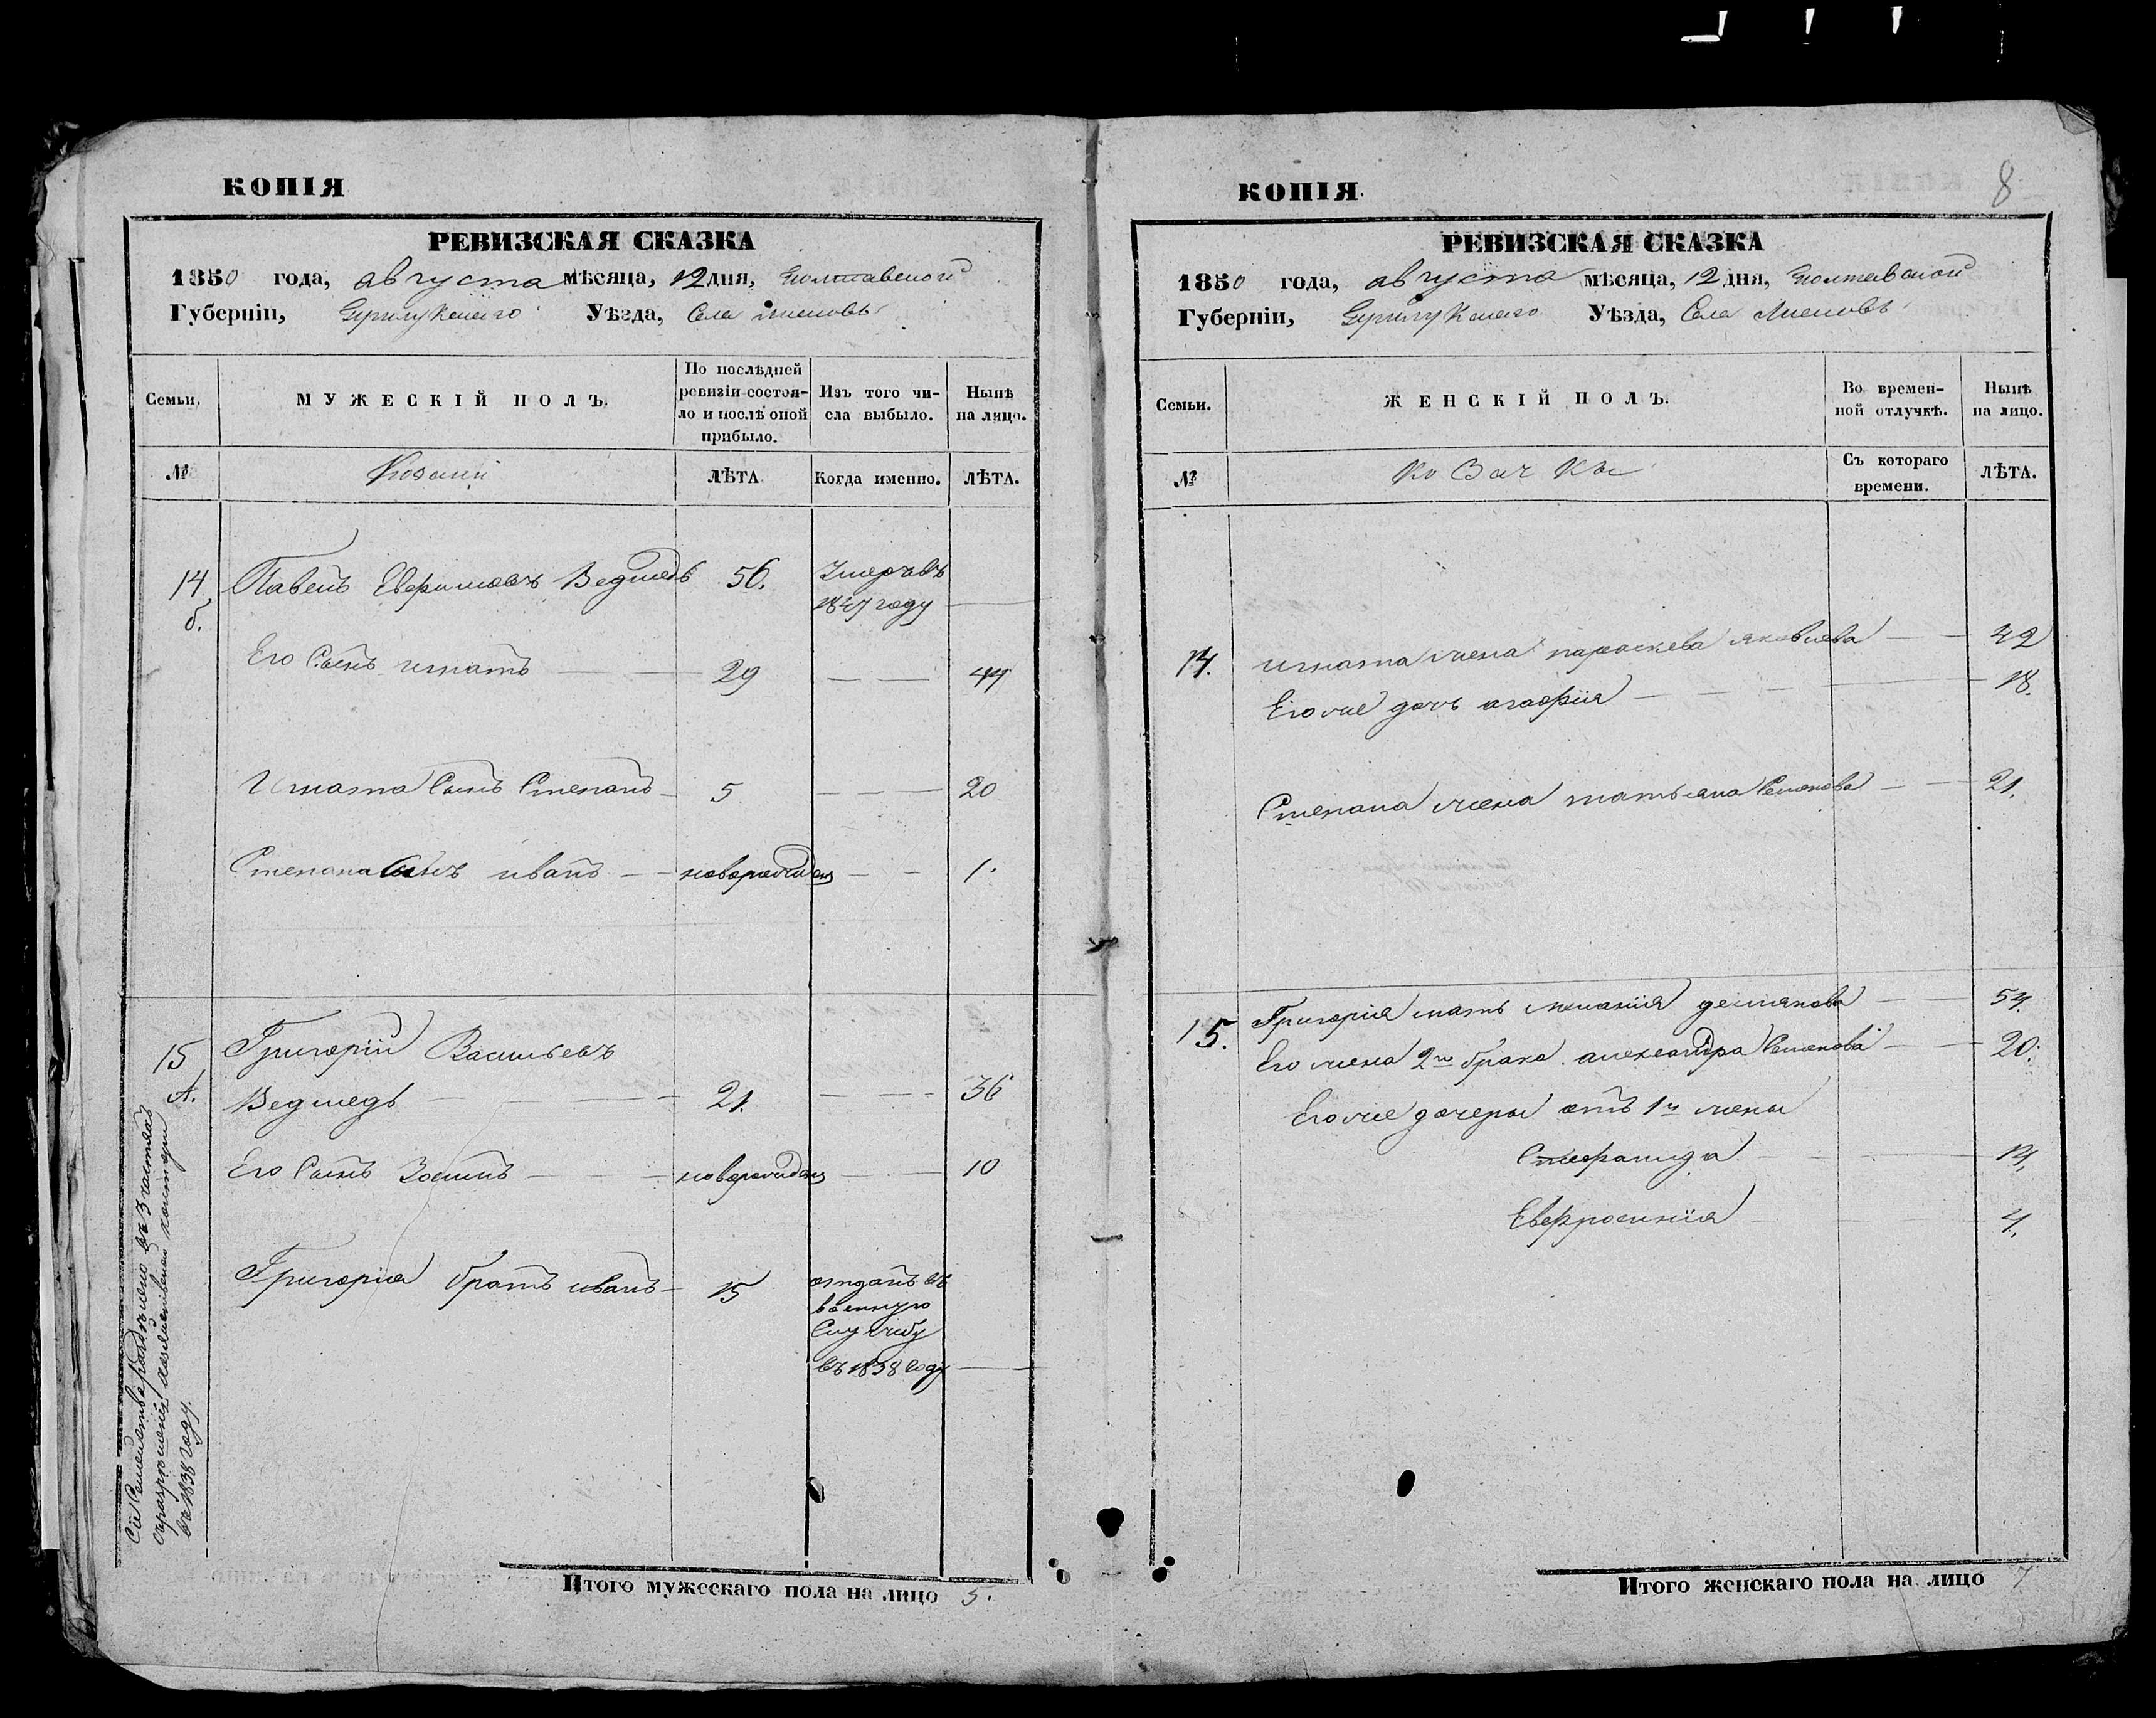 КОПІЯ
РЕВИЗСКАЯ СКАЗКА
1850 года, августа мѣсяца, 12 дня, Полтавской
Губерніи, Прилукскаго Уѣзда, Села
Семьи.
МУЖЕСКІЙ ПОЛЪ.
По послѣдней
ревизіи состоя-
ло и послѣ оной
прибыло.
Изъ того чи-
сла выбыло.
Нынѣ
на лицо.
№
Козаки
ЛѢТА
Когда именно.
ЛѢТА.
14 Павелъ Евфимовъ Ведмедь 56. Умеръ въ
б. 1847 году —
Его Сынъ игнатъ — — 29 — — 44
Игната Сынъ Степанъ — 5 — — 20
Степана Сынъ иванъ — новорожден — — 1.
15 Григорій Васильевъ
А. Ведмедь — — — 21. — — — 36
Его Сынъ Зосимъ — — новорожден — 10
Григорія братъ иванъ — 15 отданъ въ
военную
Службу
въ 1838 году —
Сіе Семейство раздѣлено въ 3 частяхъ
съ разрешенія хозяйственной конторы
въ 1838 году.
Итого мужескаго пола на лицо 5.
КОПІЯ.
8
РЕВИЗСКАЯ СКАЗКА
1850 года, августа мѣсяца, 12 дня, Полтавской
Губерніи, Прилукскаго Уѣзда, Села
Семьи.
ЖЕНСКІЙ ПОЛЪ.
Во времен-
ной отлучкѣ.
Нынѣ
на лицо.
№
Козачки
Съ котораго
времени.
ЛѢТА.
14. игната жена параскева яковлева — — 42
Его же дочь агафія — — — 18.
Степана жена татьяна Семенова — — 21.
Григорія мать меланія демянова — — 54.
15. Его жена 2го брака александра Семенова — — 20.
Его же дочери отъ 1й жены
Стефанида — — 14,
Евфросинія — — 4.
Итого женскаго пола на лицо 7